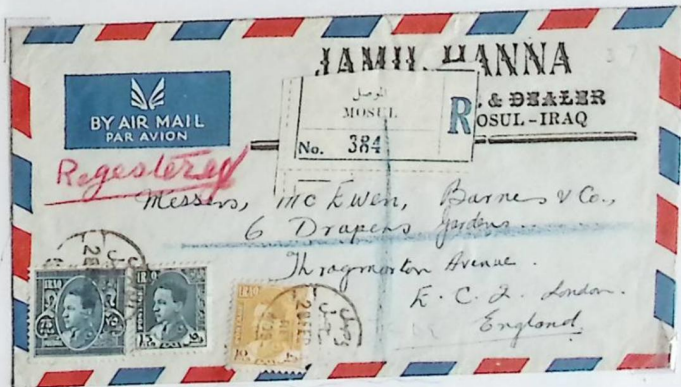 JAMIL HANNA
& DEALER
MOSUL-IRAQ
BY AIR MAIL
PAR AVION
الموصل
MOSUL
R
No. 384
Regestered
Messers, Mc Ewen, Barnes & Co.,
6 Drapers Gardens..
Throgmorton Avenue.
E. C. 2. London.
England.
IRAQ
IRAQ
IRAQ